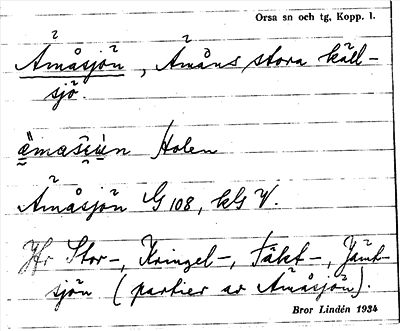 Orsa sn och tg, Kopp. l.
Åmåsjön, Åmåns stora käll-
sjö.
Holen
Åmåsjön G 108, kG V.
Jfr Stor-, Kringel-, Täkt-, Jämt-
sjön (partier av Åmåsjön).
Bror Lindén 1934